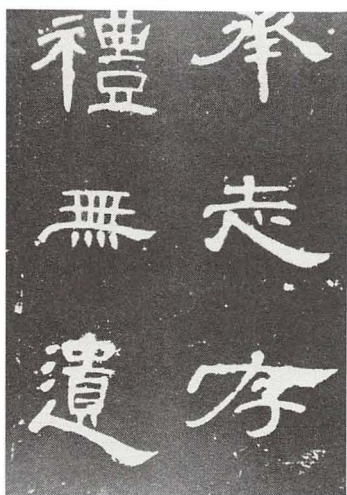 承志存
禮無遺